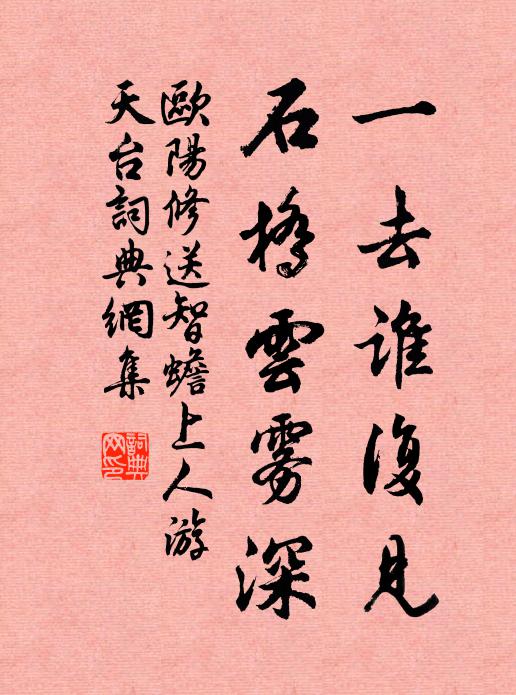 一去誰復見
石橋雲霧深
歐陽修送智蟾上人游
天台詞典網集
詞典网印